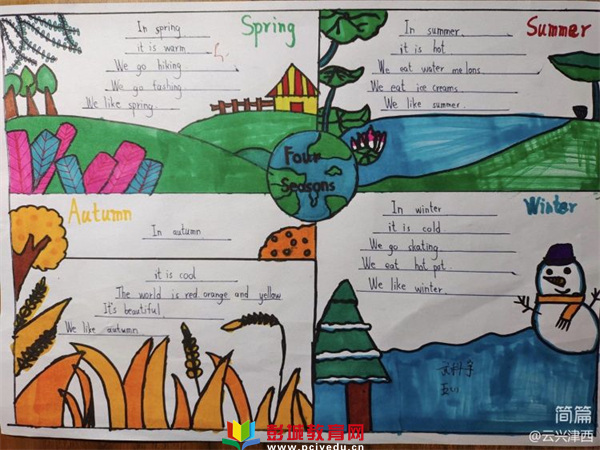 Spring
In spring
it is warm
We go hiking
We go fashing
We like spring.
Summer
In summer.
it is hot
We eat water melons.
We eat ice creams.
We like summer.
Four
Seasons
Autumn
In autumn
it is cool
The world is red. orange and yellow
It's beautiful
We like autumn
Winter
In winter
it is cold
We go skating.
We eat hot pot.
We like winter.
简篇
@云兴津西
彭城教育网
www.pcjyedu.cn